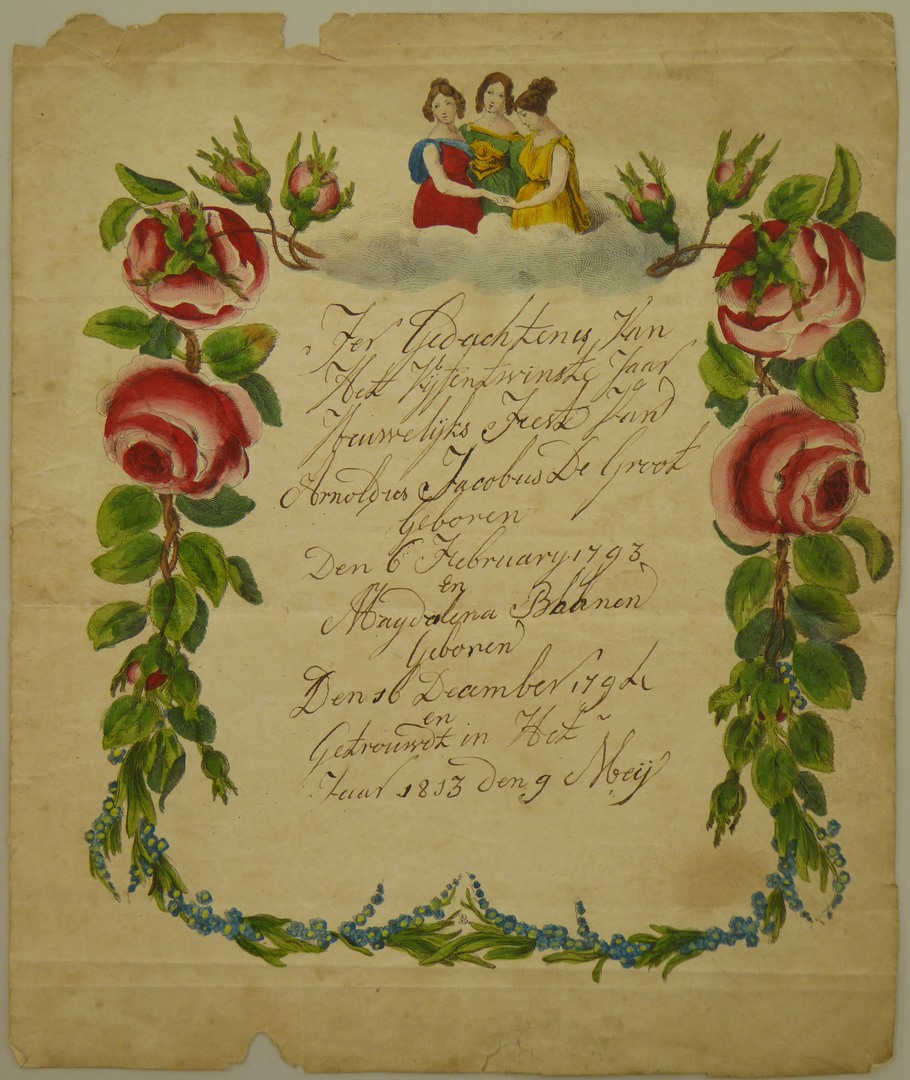 Ter Gedachtenis Van
Het Vijfentwinste Jaar
Heuwelijks Feest Van
Arnoldus Jacobus De Groot
Geboren
Den 6 February 1793
En
Magdalena Baanen
Geboren
Den 16 December 1794
en
Getrouwdt in Het
Jaar 1813 den 9 Meij